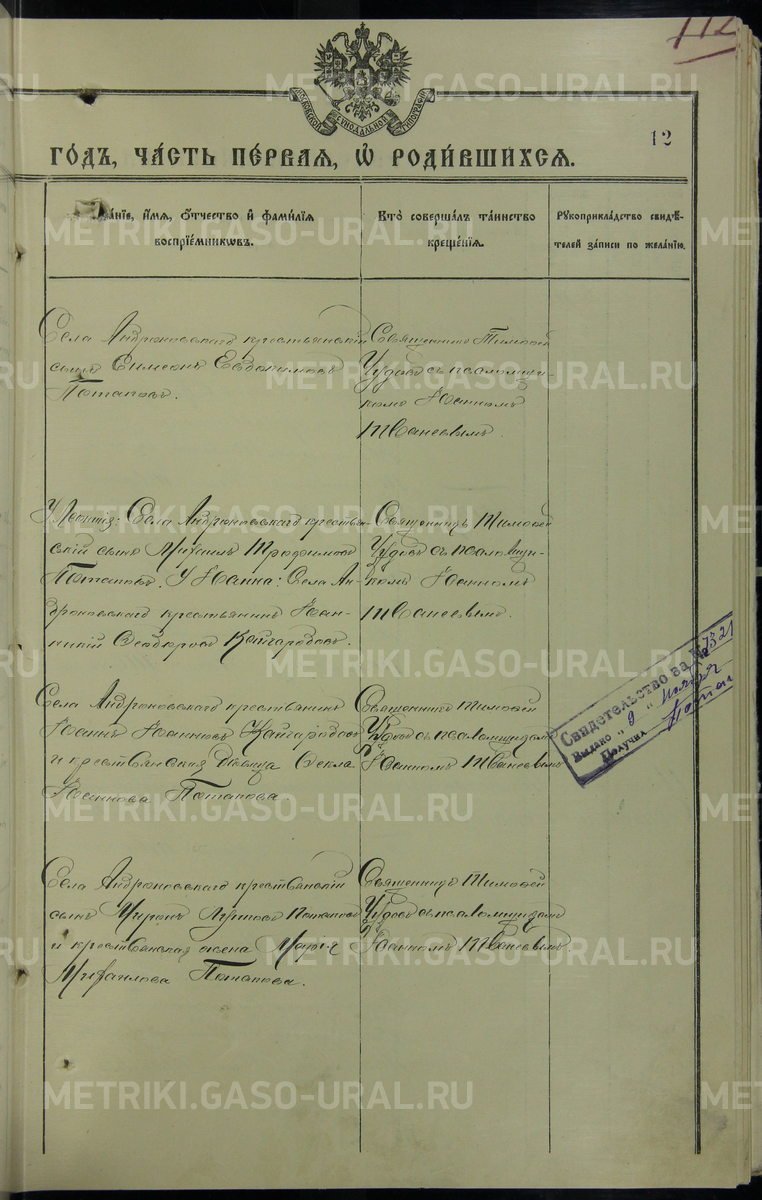 112
12
МОСКОВСКОЙ СѴНОДАЛЬНОЙ ТИПОГРАФІИ
ГО́ДЪ, ЧА́СТЬ ПЕ́РВАЯ, Ѡ҆ РОДИ́ВШИХСЯ.
Зва́нїе, и҆́мя, ѻ҆́тчество и҆ фами́лїя
воспрїе́мникѡвъ.
Кто̀ соверша́лъ та́инство
креще́нїя.
Рꙋкоприкла́дство свидѣ́-
телей за́писи по жела́нїю.
Села Андроновскаго крестьянскій
сынъ Симеонъ Евдокимовъ
Потаповъ.
Священникъ Тимофей
Чудовъ съ псаломщи-
комъ Іоанномъ
Ивановымъ.
У Леонтія: Села Андроновскаго крестьян-
скій сынъ Михаилъ Трофимовъ
Потаповъ. У Іоанна: Села Ан-
дроновскаго крестьянинъ Іоан-
никій Ѳеодоровъ Кайгородовъ.
Священникъ Тимофей
Чудовъ съ псаломщи-
комъ Іоанномъ
Села Андроновскаго крестьянинъ
Іоаннъ Іоанновъ Кайгородовъ
и крестьянская дѣвица Ѳекла
Потапова.
Священникъ Тимофей
Чудовъ съ псаломщикомъ
Іоанномъ
Свидетельство за № 7321
Выдано " 9 " Ноября
Получил Потапов
Села Андроновскаго крестьянскій
сынъ Миронъ Потаповъ
и крестьянская жена Марія
Михаилова Потапова.
Священникъ Тимофей
Чудовъ съ псаломщикомъ
Іоанномъ
METRIKI.GASO-URAL.RU